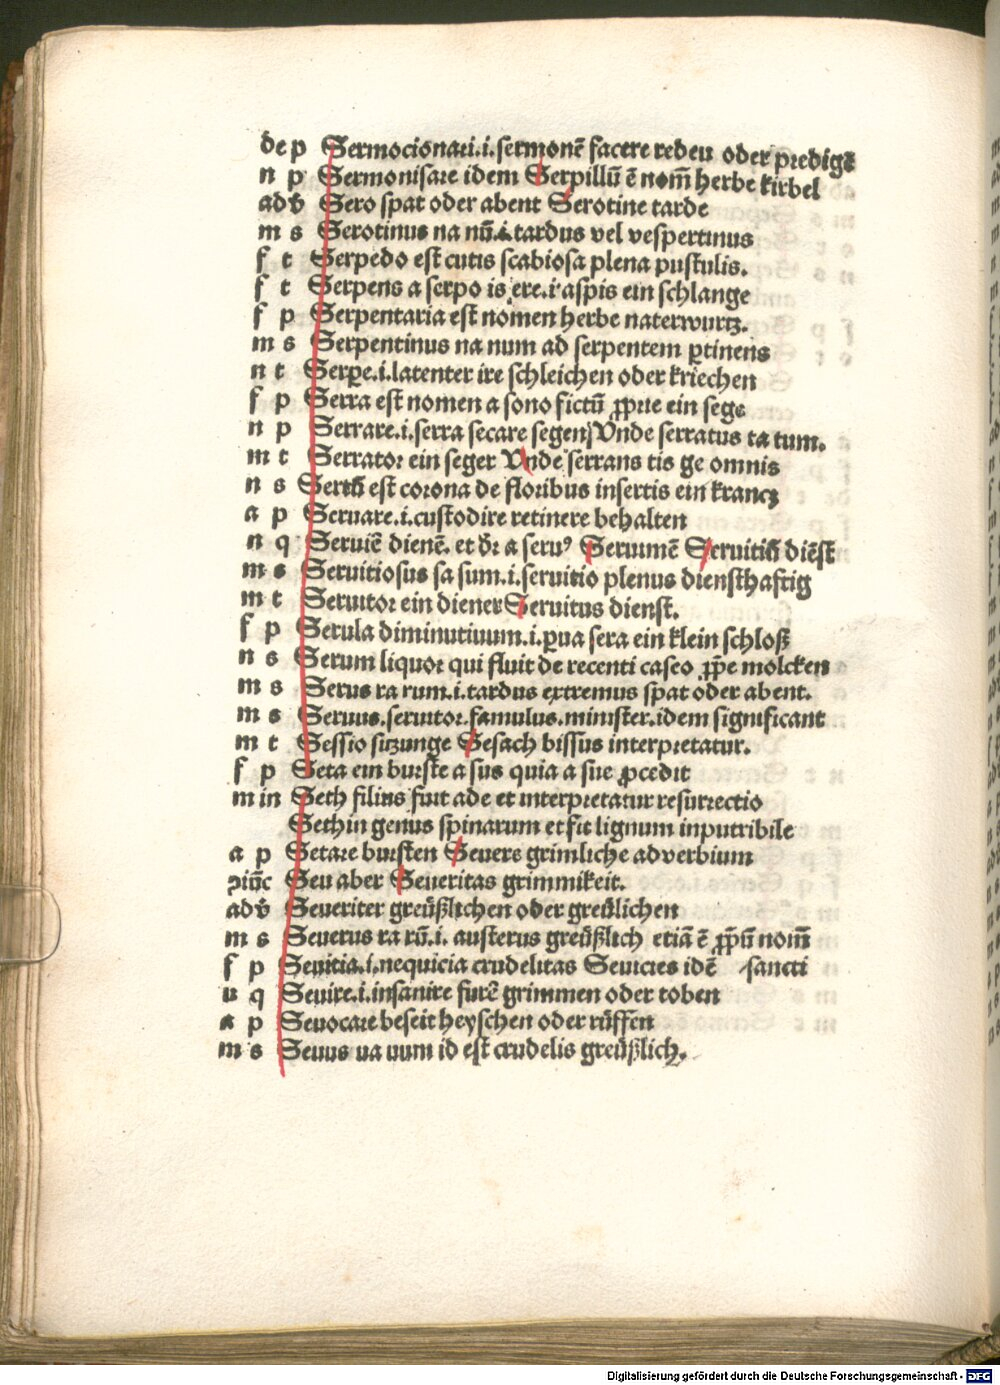 de p Sermocionari.i.sermonē facere reden oder predigē
n p Sermonisare idem Serpillū ē nom̄ herbe kirbel
adv̄ Sero spat oder abent Serotine tarde
m s Serotinus na nū.i.tardus vel vespertinus
f t Serpedo est cutis scabiosa plena pustulis.
f t Serpens a serpo is ere.i aspis ein schlange
f p Serpentaria est nomen herbe naterwurtz.
m s Serpentinus na num ad serpentem ꝑtinens
n t Serꝑe.i.latenter ire schleichen oder kriechen
f p Serra est nomen a sono fictū ꝓprie ein sege
n p Serrare.i.serra secare segen Vnde serratus ta tum.
m t Serrator ein seger Vnde serrans tis ge omnis
n s Sertū est corona de floribus insertis ein krancz
a p Seruare.i.custodire retinere behalten
n q Seruiē dienē. et dr̄ a seruꝰ Seruimē Seruitiū diēst
m s Seruitiosus sa sum.i.seruitio plenus diensthaftig
m t Seruitor ein diener Seruitus dienst.
f p Serula diminutiuum.i.ꝑua sera ein klein schloß
n s Serum liquor qui fluit de recenti caseo ꝓpe molcken
m s Serus ra rum.i.tardus extremus spat oder abent.
m s Seruus.seruitor.famulus.minister.idem significant
m t Sessio sitzunge Sesach bissus interpretatur.
f p Seta ein burste a sus quia a sue ꝓcedit
m in Seth filius fuit ade et interpretatur resurrectio
Sethin genus spinarum et fit lignum inputribile
a p Setare bursten Seuere grimliche adverbium
ↄiūc Seu aber Seueritas grimmikeit.
adv̄ Seueriter greüßlichen oder greülichen
m s Seuerus ra rū.i. austerus greüßlich etiā ē ꝓpū nom̄
f p Seuitia.i.nequicia crudelitas Seuicies idē sancti
u q Seuire.i.insanire furē grimmen oder toben
a p Seuocare beseit heyschen oder rüffen
m s Seuus ua uum id est crudelis greüßlich.
Digitalisierung gefördert durch die Deutsche Forschungsgemeinschaft - DFG